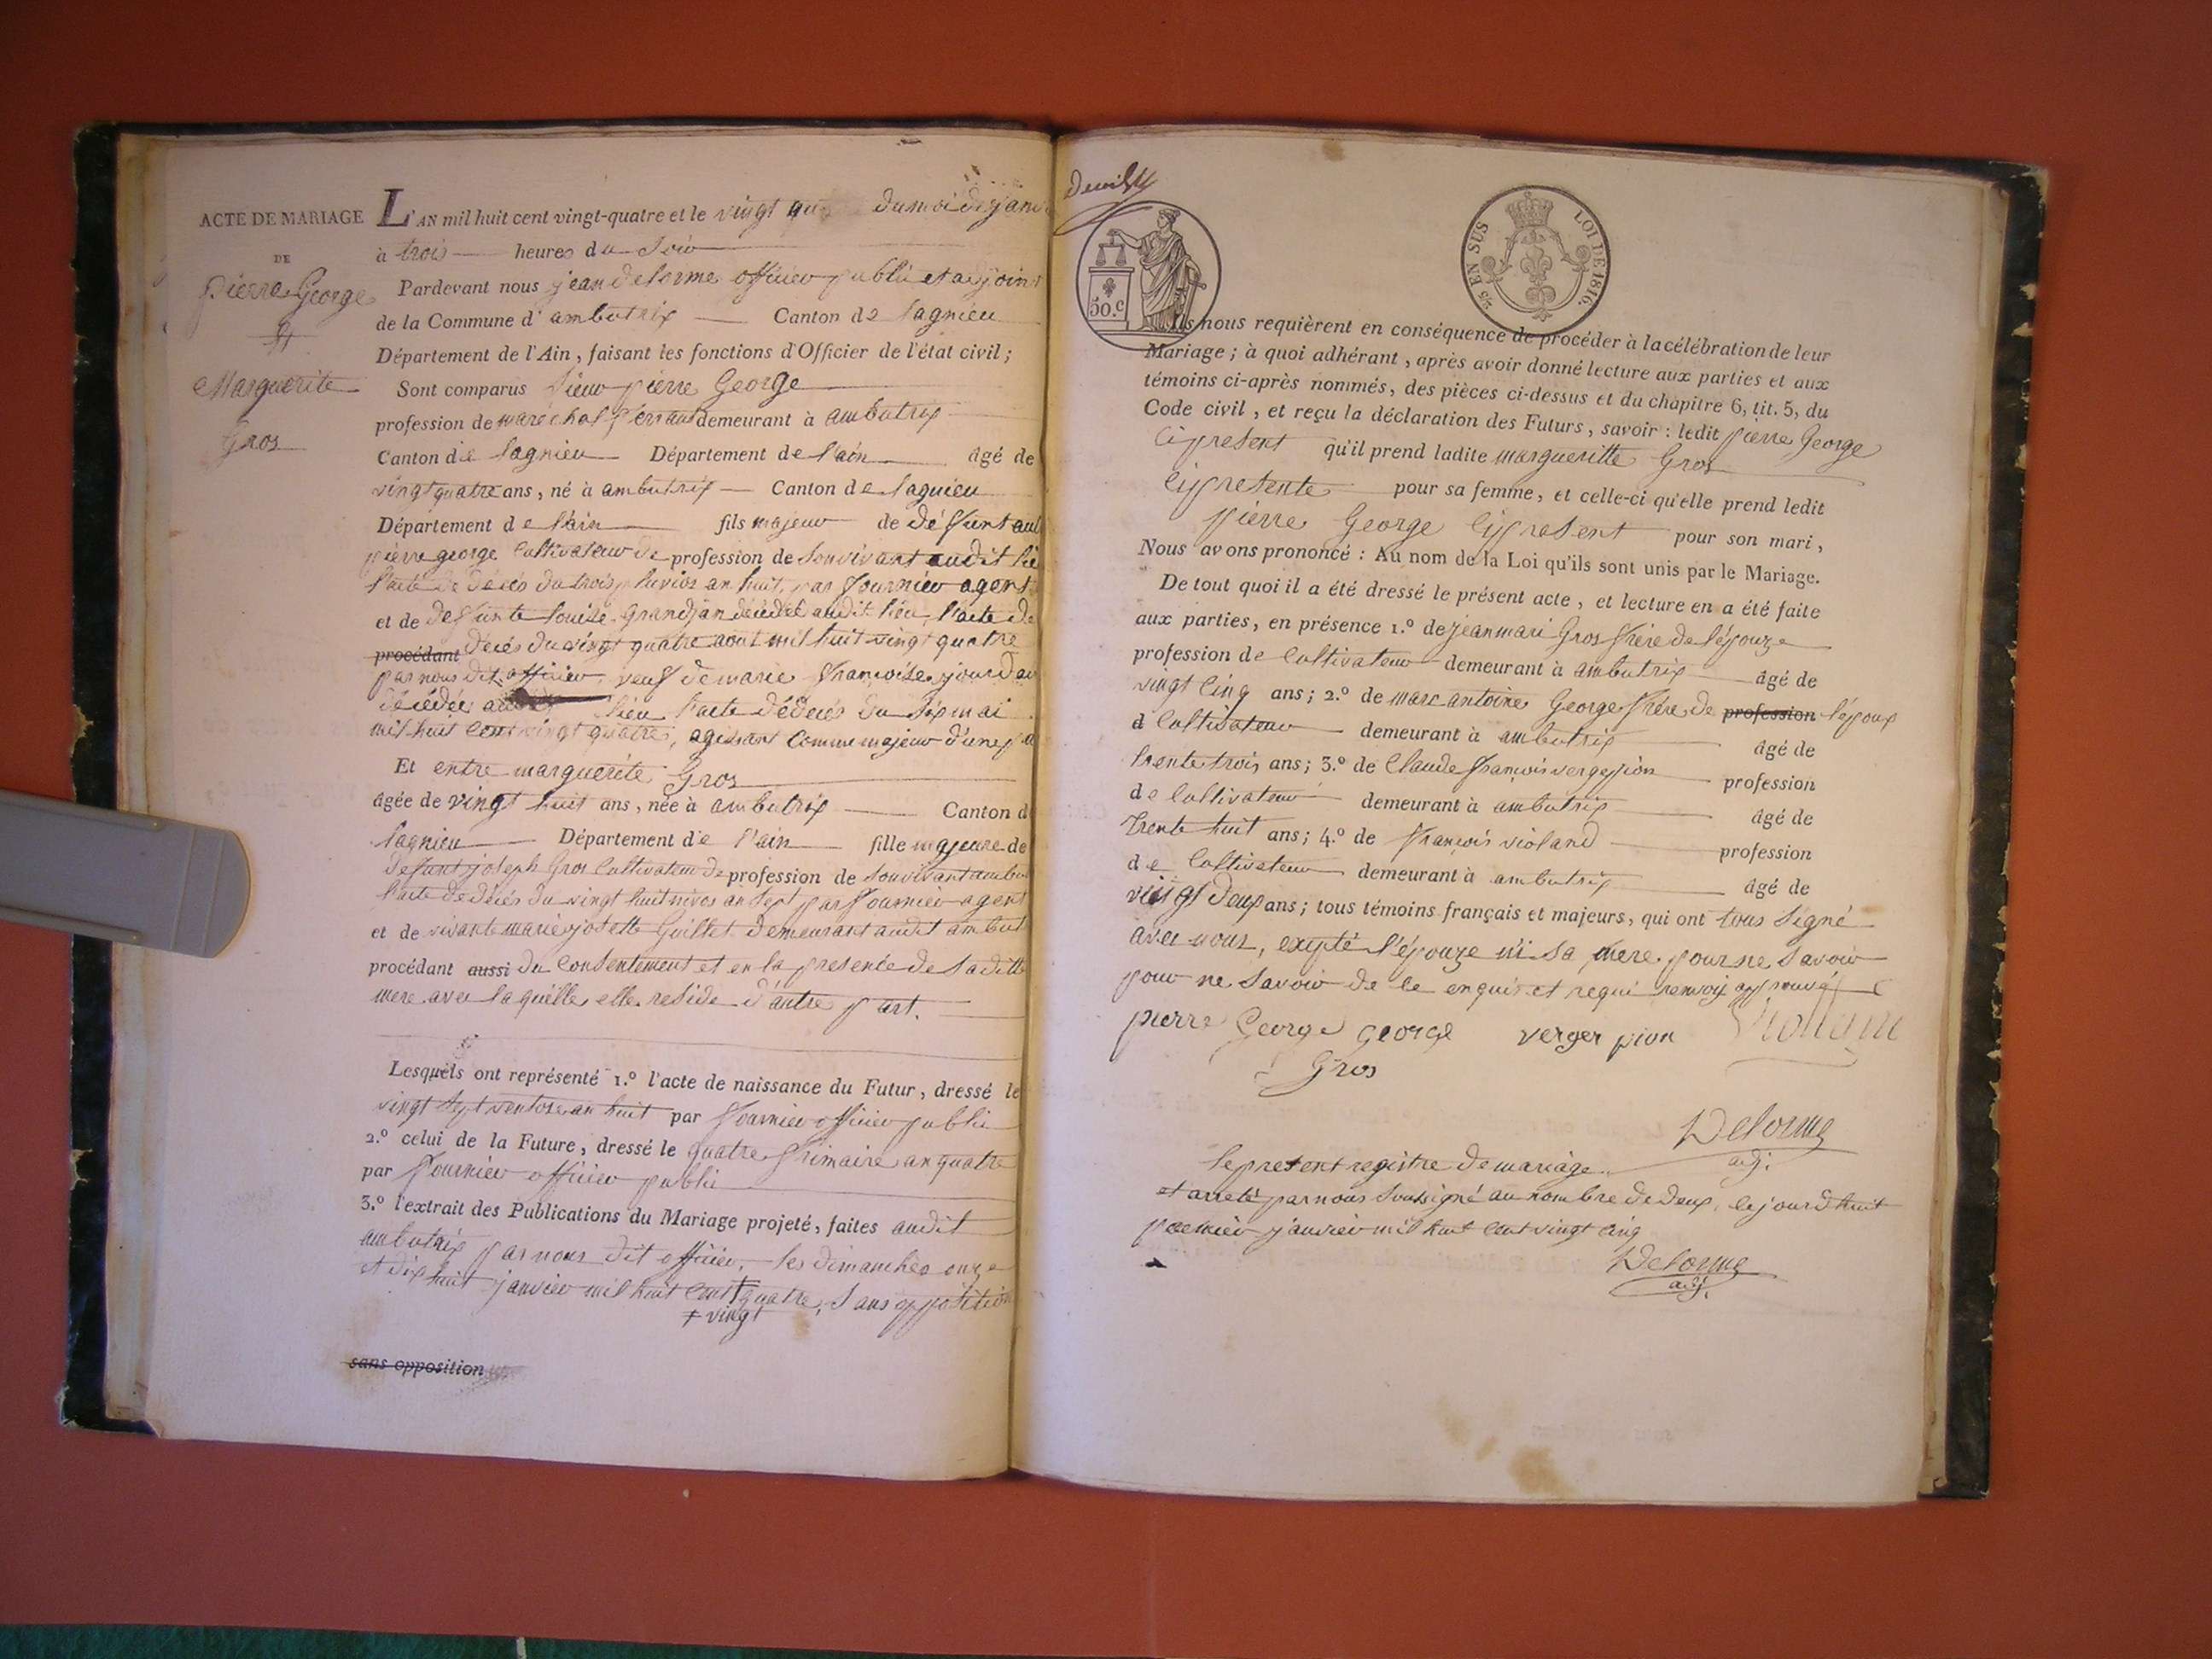 ACTE DE MARIAGE
DE
Pierre George
et
Marguerite
Gros
L'AN mil huit cent vingt-quatre et le vingt du moi de janv
à trois heures du soir
Pardevant nous jean delorme officier public et adjoint
de la Commune d'ambutrix Canton de lagnieu
Département de l'Ain, faisant les fonctions d'Officier de l'état civil;
Sont comparus sieur pierre George
profession de maréchal ferrant demeurant à ambutrix
Canton de lagnieu Département de l'ain âgé de
vingt quatre ans, né à ambutrix Canton de lagnieu
Département de l'ain fils majeur de défunt aut
pierre george cultivateur de profession de son vivant audit lie
l'acte de décès du trois pluviose an huit, par fournier agent
et de defunte louise grandjan décédée audit lieu, l'acte de
procédant decés du vingt quatre aout mil huit vingt quatre
par nous dit officier, veuf de marie françoise jourdan
décédée lieu l'acte dédecés du six mai
mil huit cent vingt quatre, agissant comme majeur d'une p
Et entre marguerite Gros
âgée de vingt huit ans, née à ambutrix Canton d
lagnieu Département de l'ain fille majeure de
defunt joseph Gros cultivateur de profession de son vivant ambu
l'acte de décés du vingt huit nivos an sept par fournier agent
et de vivante marie josette Guillet demeurant audit ambut
procédant aussi du consentement et en la presence de sa ditte
mere avec laquelle elle reside d'autre part.
Lesquels ont représenté 1.º l'acte de naissance du Futur, dressé le
vingt sept ventose an huit par fournier officier public
2.º celui de la Future, dressé le quatre frimaire an quatre
par fournier officier public
3.º l'extrait des Publications du Mariage projeté, faites audit
ambutrix par nous dit officier, les dimanches onze
et dix huit janvier mil huit cent ‡ quatre, sans opposition
‡ vingt
sans opposition
50.c
25 EN SUS
LOI DE 1816.
Ils nous requièrent en conséquence de procéder à la célébration de leur
Mariage; à quoi adhérant, après avoir donné lecture aux parties et aux
témoins ci-après nommés, des pièces ci-dessus et du chapitre 6, tit. 5, du
Code civil, et reçu la déclaration des Futurs, savoir: ledit pierre George
cipresent qu'il prend ladite margueritte Gros
cipresente pour sa femme, et celle-ci qu'elle prend ledit
pierre George cipresent pour son mari,
Nous avons prononcé: Au nom de la Loi qu'ils sont unis par le Mariage.
De tout quoi il a été dressé le présent acte, et lecture en a été faite
aux parties, en présence 1.º de jean mari Gros frère de l'épouze
profession de cultivateur demeurant à ambutrix âgé de
vingt cinq ans; 2.º de marc antoine George frère de profession l'époux
d cultivateur demeurant à ambutrix âgé de
trente trois ans; 3.º de Claude françois vergerpion profession
de cultivateur demeurant à ambutrix âgé de
trente huit ans; 4.º de françois violand profession
de cultivateur demeurant à ambutrix âgé de
vingt deux ans; tous témoins français et majeurs, qui ont tous signé
avec nous, excepté l'épouze ni sa mere pour ne savoir
pour ne savoir de ce enquis et requi renvoix approuvé
pierre George george verger pion
Gros
Delorme
adj.
le present registre de mariage
et arreté par nous soussigné au nombre de deux, cejourdhuit
premier janvier mil huit cent vingt cinq
Delorme
adj.